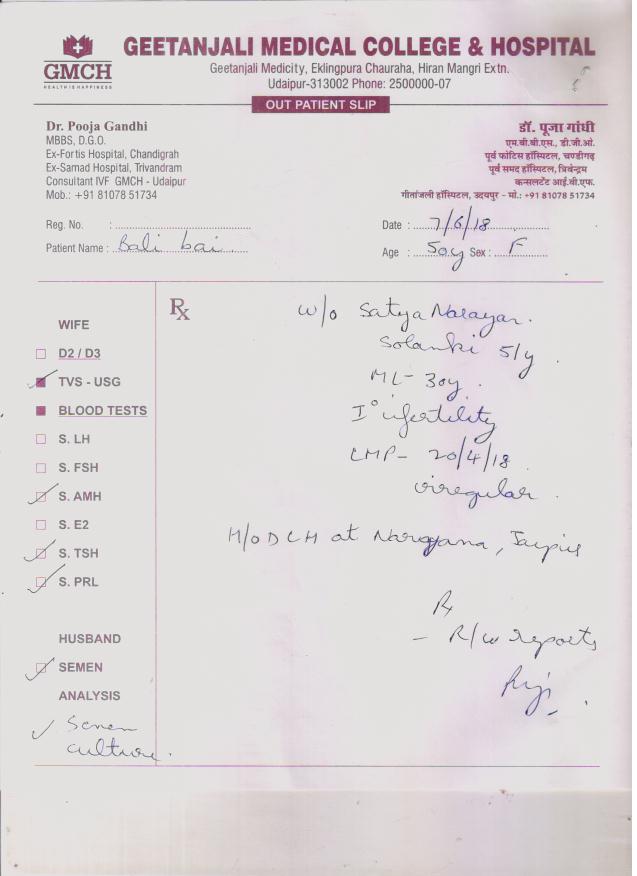 GMCH
HEALTH IS HAPPINESS
GEETANJALI MEDICAL COLLEGE & HOSPITAL
Geetanjali Medicity, Eklingpura Chauraha, Hiran Mangri Extn.
Udaipur-313002 Phone: 2500000-07
OUT PATIENT SLIP
Dr. Pooja Gandhi
MBBS, D.G.O.
Ex-Fortis Hospital, Chandigrah
Ex-Samad Hospital, Trivandram
Consultant IVF GMCH - Udaipur
Mob.: +91 81078 51734
डॉ. पूजा गांधी
एम.बी.बी.एस., डी.जी.ओ.
पूर्व फोर्टिस हॉस्पिटल, चण्डीगढ़
पूर्व समद हॉस्पिटल, त्रिवेन्द्रम
कन्सलटेंट आई.वी.एफ.
गीतांजली हॉस्पिटल, उदयपुर - मो.: +91 81078 51734
Reg. No. :
Date : 7/6/18
Patient Name : Bali bai
Age : 50y Sex : F
Rx
w/o Satya Narayan.
Solanki 51y
ML- 30y.
I° infertility
LMP- 20/4/18
irregular.
H/O DCH at Narayana, Jaipur
Rx
- R/w reports
WIFE
D2 / D3
TVS - USG
BLOOD TESTS
S. LH
S. FSH
S. AMH
S. E2
S. TSH
S. PRL
HUSBAND
SEMEN
ANALYSIS
Semen
culture.